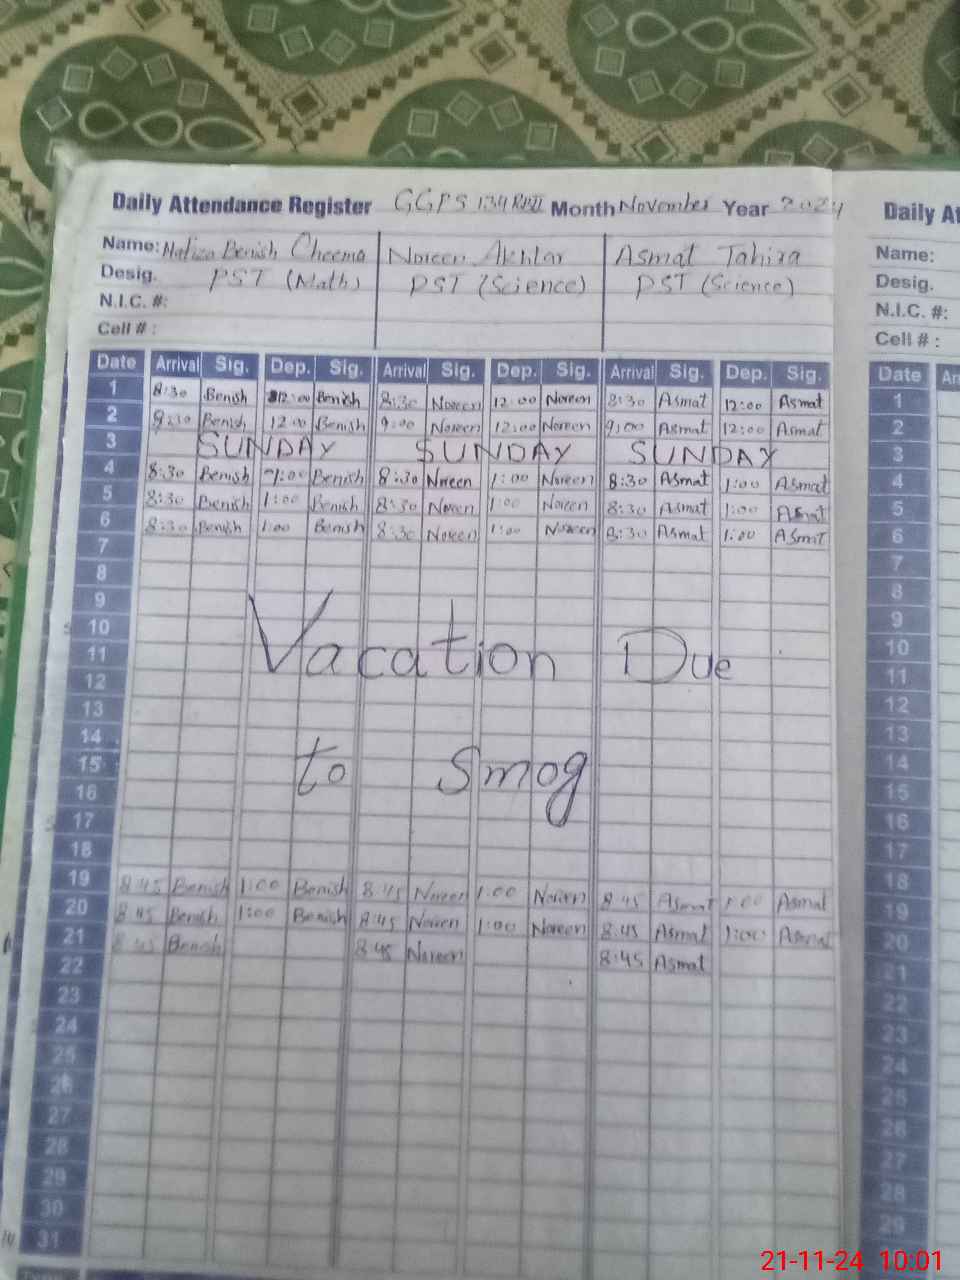 Daily Attendance Register GGPS 134 Month November Year 2024 Daily At
Name: Benish Cheema Noreen Akhtar Asmat Tahira Name:
Desig. PST (Math) PST (Science) PST (Science) Desig.
N.I.C. #: N.I.C. #:
Cell # : Cell # :
Date Arrival Sig. Dep. Sig. Arrival Sig. Dep. Sig. Arrival Sig. Dep. Sig. Date
1 8:30 Benish 12:00 Benish 8:30 Noreen 12:00 Noreen 8:30 Asmat 12:00 Asmat 1
2 Benish 12:00 Benish 9:00 Noreen 12:00 Noreen 9:00 Asmat 12:00 Asmat 2
3 SUNDAY SUNDAY SUNDAY 3
4 8:30 Benish 1:00 Benish 8:30 Noreen 1:00 Noreen 8:30 Asmat 1:00 Asmat 4
5 8:30 Benish 1:00 Benish 8:30 Noreen 1:00 Noreen 8:30 Asmat 1:00 Asmat 5
6 8:30 Benish 1:00 Benish 8:30 Noreen 1:00 Noreen 8:30 Asmat 1:00 Asmt 6
7 7
8 8
9 9
10 10
11 Vacation Due 11
12 12
13 13
14 14
15 to Smog 15
16 16
17 17
18 18
19 8:45 Benish 1:00 Benish 8:45 Noreen 1:00 Noreen 8:45 Asmat 1:00 Asmat 19
20 8:45 Benish 1:00 Benish 8:45 Noreen 1:00 Noreen 8:45 Asmat 1:00 Asmat 20
21 8:45 Benish 8:45 Noreen 8:45 Asmat 21
22 22
23 23
24 24
25 25
26 26
27 27
28 28
29 29
30
31
21-11-24 10:01